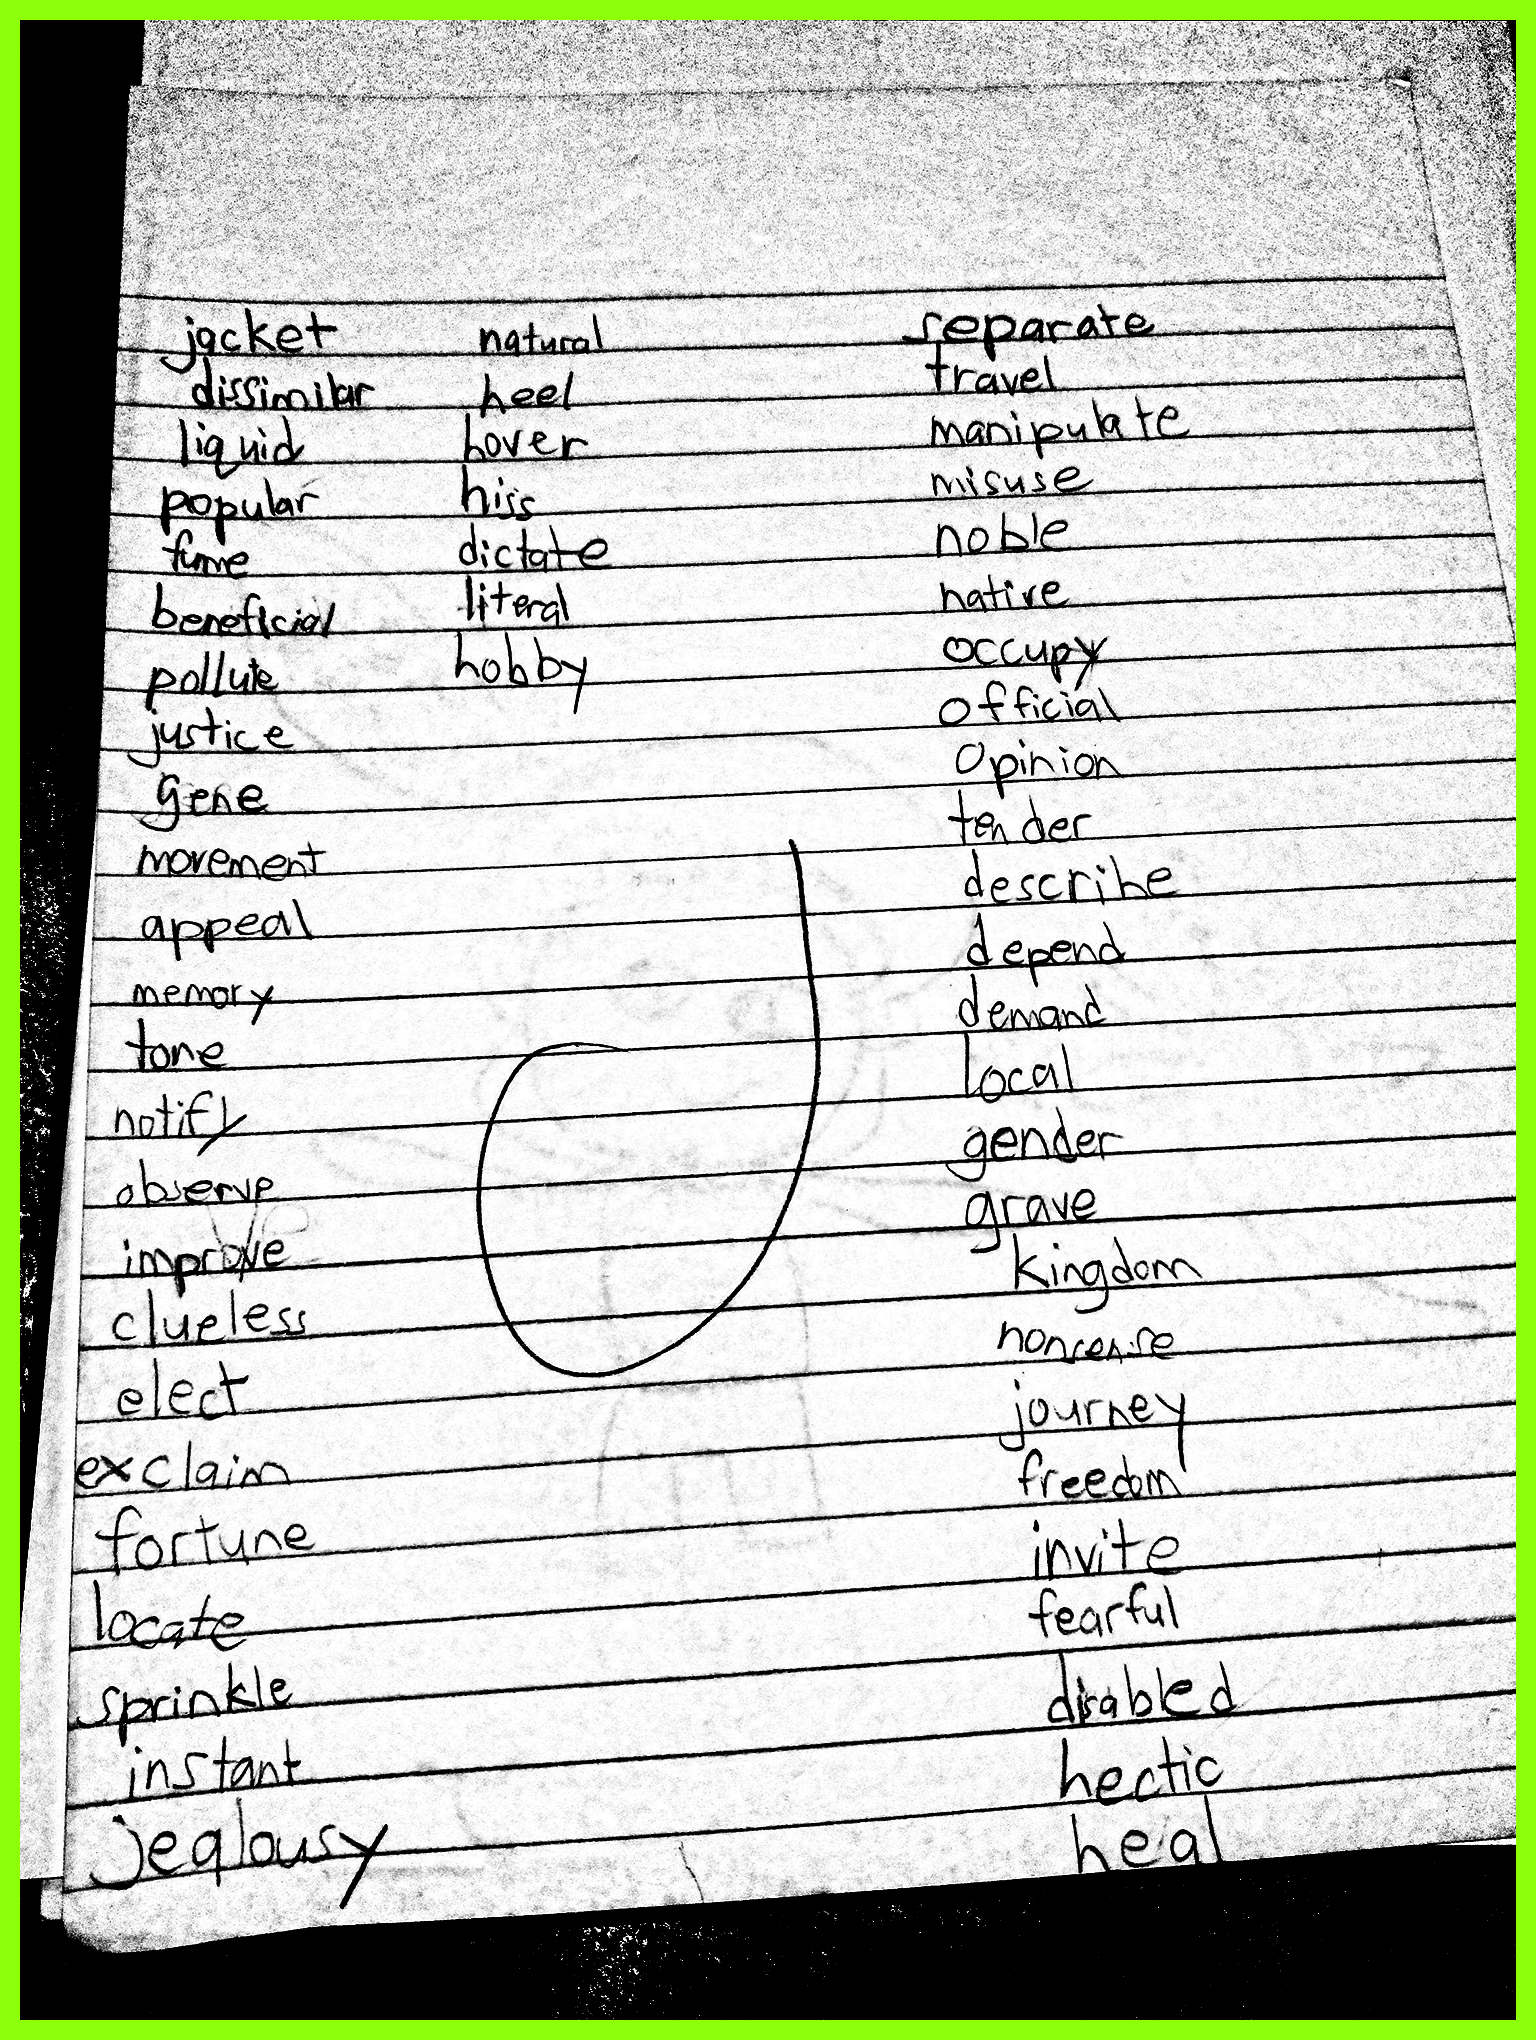 jacket
dissimilar
liquid
popular
fume
beneficial
pollute
justice
gene
movement
appeal
memory
tone
notify
observe
improve
clueless
elect
exclaim
fortune
locate
sprinkle
instant
jealousy
natural
heel
hover
hiss
dictate
literal
hobby
separate
travel
manipulate
misuse
noble
native
occupy
official
opinion
tender
describe
depend
demand
local
gender
grave
kingdom
noncense
journey
freedom
invite
fearful
disabled
hectic
heal